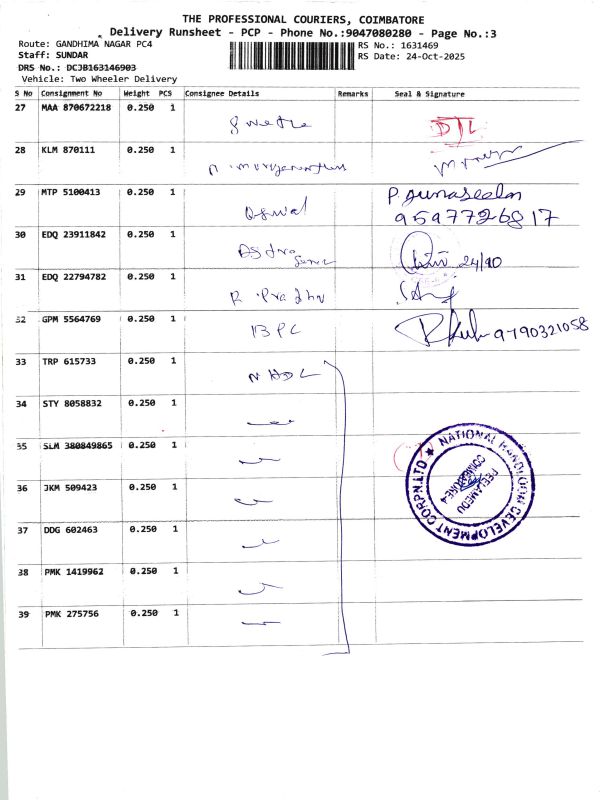 THE PROFESSIONAL COURIERS, COIMBATORE
Delivery Runsheet - PCP - Phone No.:9047080280 - Page No.:3
Route: GANDHIMA NAGAR PC4
RS No.: 1631469
Staff: SUNDAR
RS Date: 24-Oct-2025
DRS No.: DCJB163146903
Vehicle: Two Wheeler Delivery
S No Consignment No Weight PCS Consignee Details Remarks Seal & Signature
27 MAA 870672218 0.250 1
DTL
28 KLM 870111 0.250 1
29 MTP 5100413 0.250 1
P. Gunaseelan
9597726817
30 EDQ 23911842 0.250 1
24/10
31 EDQ 22794782 0.250 1
R. Pradhu
32 GPM 5564769 0.250 1
BPC
9790321058
33 TRP 615733 0.250 1
NHDC
34 STY 8058832 0.250 1
35 SLM 380849865 0.250 1
36 JKM 509423 0.250 1
37 DDG 602463 0.250 1
38 PMK 1419962 0.250 1
39 PMK 275756 0.250 1
NATIONAL HANDLOOM DEVELOPMENT CORPN.LTD
PEELAMEDU
COIMBATORE-4